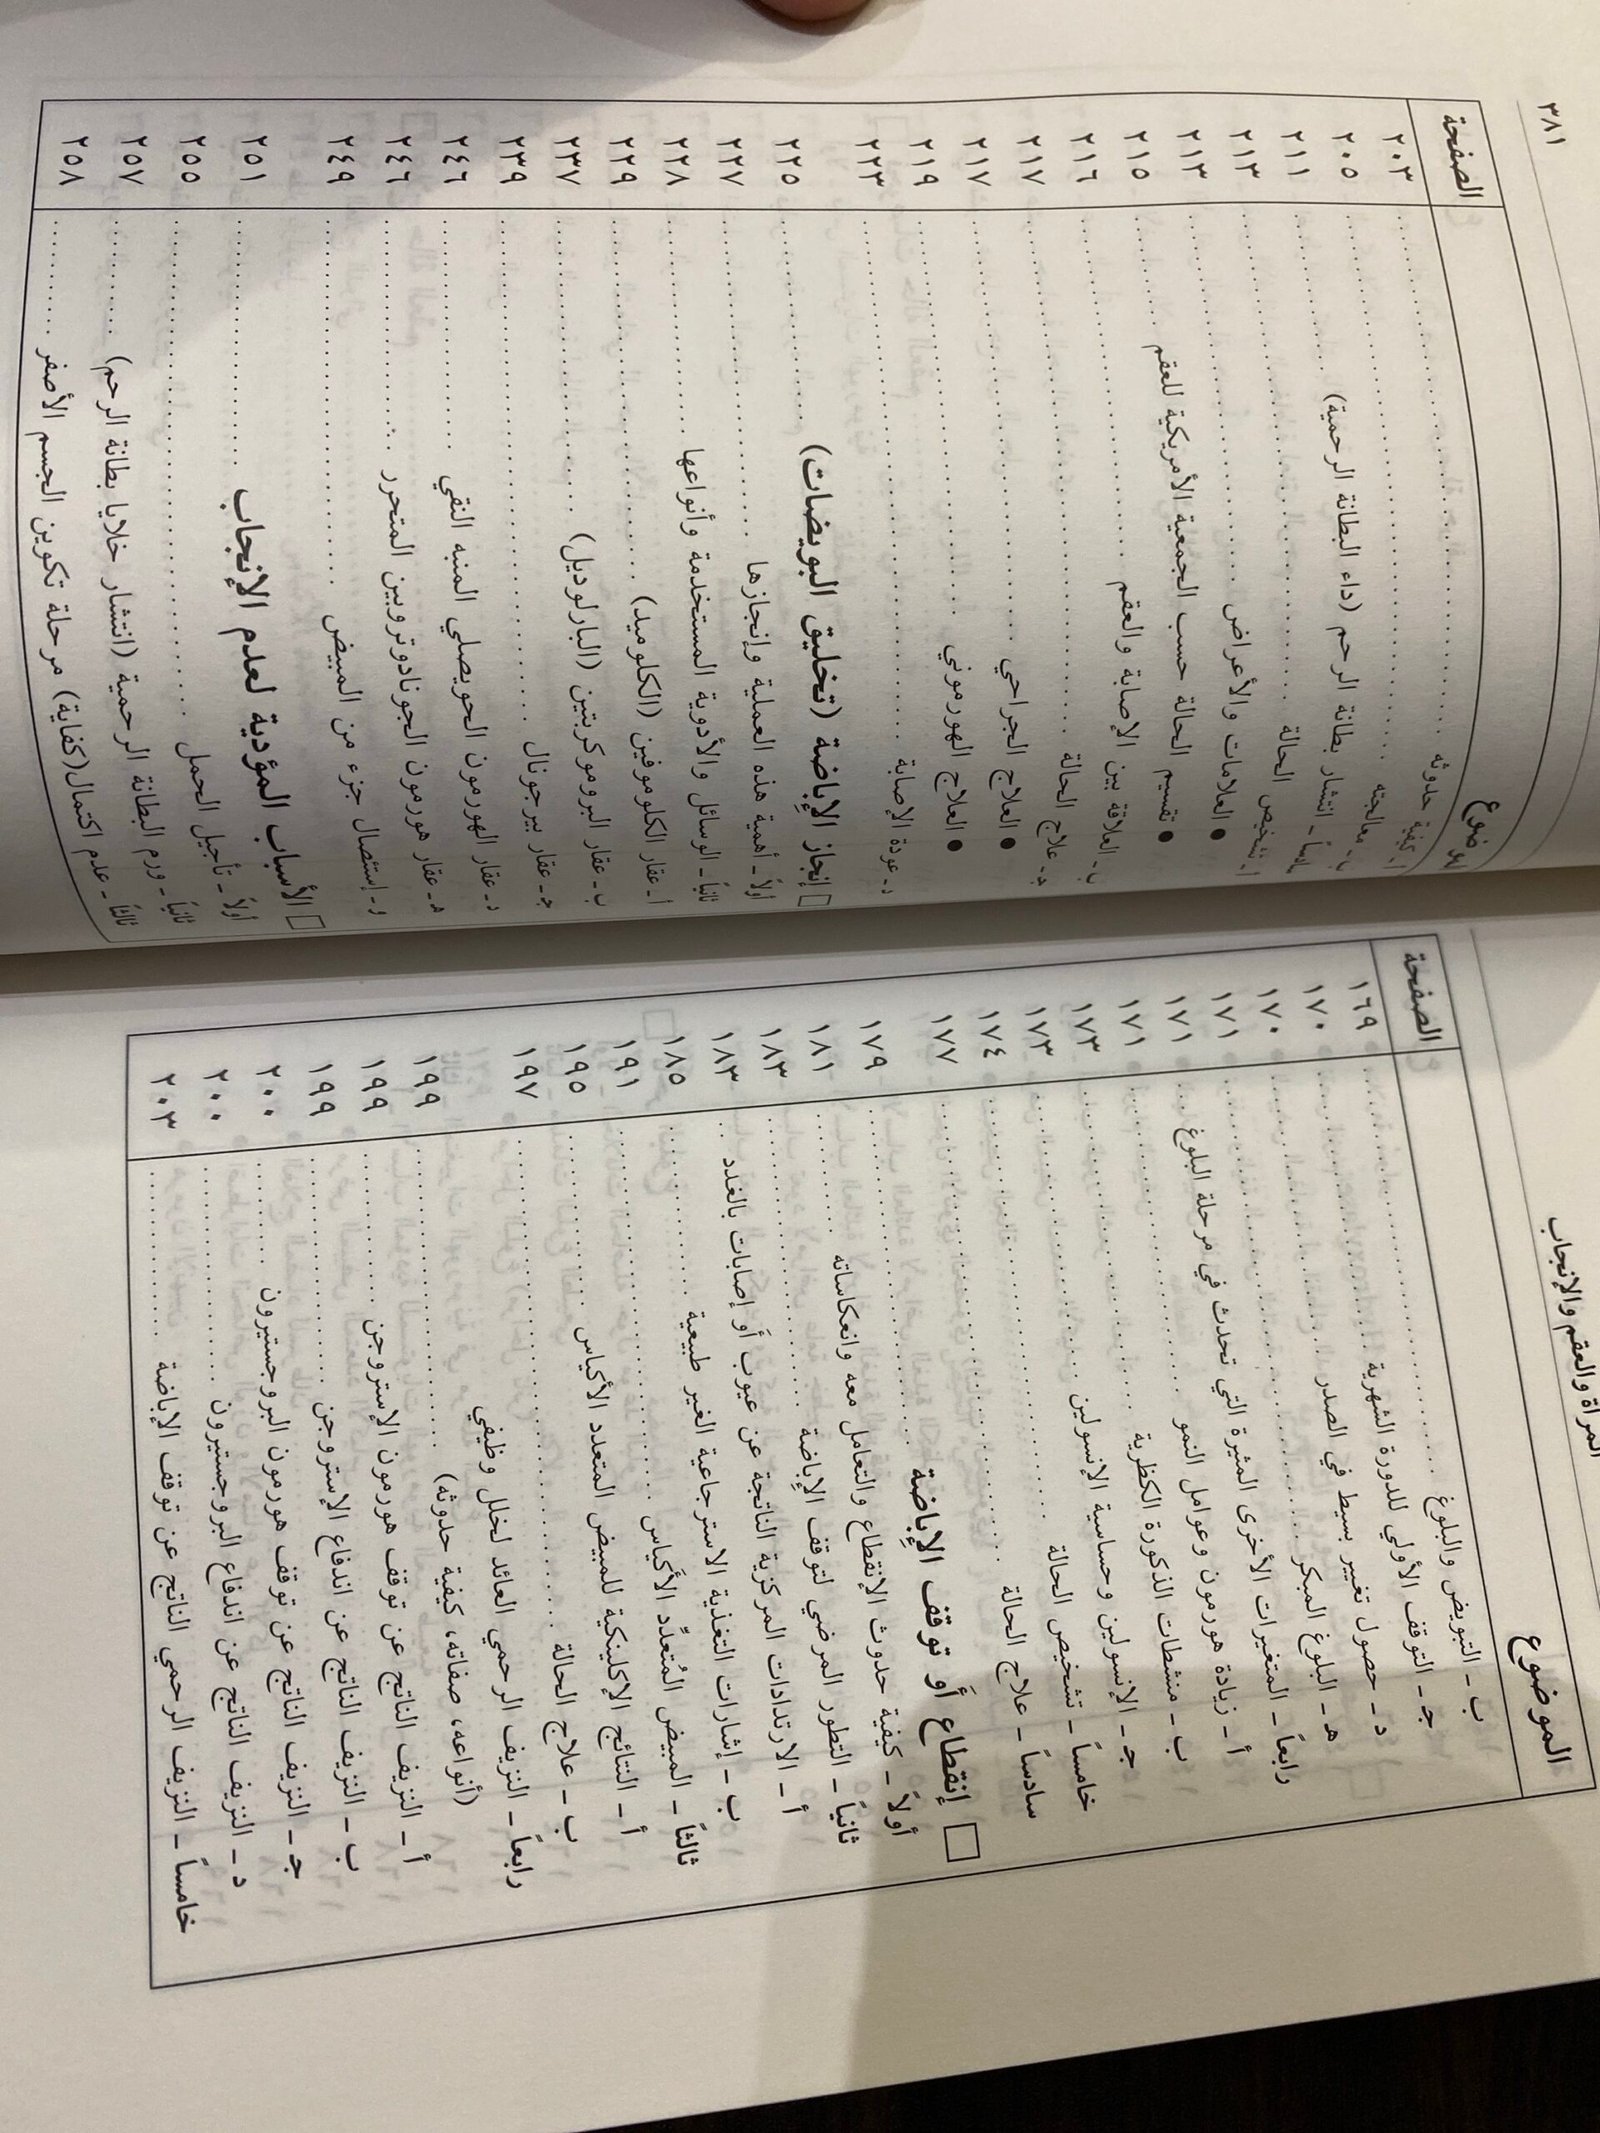 المرأة والعقم والإنجاب
الموضوع الصفحة
ب ـ التبويض والبلوغ ١٦٩
جـ ـ التوقف الأولي للدورة الشهرية ١٧٠
د ـ حصول تغيير بسيط في الصدر ١٧٠
هـ ـ البلوغ المبكر ١٧١
رابعاً ـ المتغيرات الأخرى المثيرة التي تحدث في مرحلة البلوغ ١٧١
أ ـ زيادة هورمون وعوامل النمو ١٧١
ب ـ منشطات الذكورة الكظرية ١٧٣
جـ ـ الإنسولين وحساسية الإنسولين ١٧٣
خامساً ـ تشخيص الحالة ١٧٤
سادساً ـ علاج الحالة ١٧٧
□ إنقطاع أو توقف الإباضة ١٧٩
أولاً ـ كيفية حدوث الإنقطاع والتعامل معه وانعكاساته ١٨١
ثانياً ـ التطور المرضي لتوقف الإباضة ١٨٣
أ ـ الارتدادات المركزية الناتجة عن عيوب أو إصابات بالغدد ١٨٣
ب ـ إشارات التغذية الاسترجاعية الغير طبيعية ١٨٥
ثالثاً ـ المبيض المُتعدِّد الأكياس ١٩١
أ ـ النتائج الإكلينكية للمبيض المتعدد الأكياس ١٩٥
ب ـ علاج الحالة ١٩٧
رابعاً ـ النزيف الرحمي العائد لخلل وظيفي
(أنواعه، صفاته، كيفية حدوثه) ١٩٩
أ ـ النزيف الناتج عن توقف هورمون الإستروجن ١٩٩
ب ـ النزيف الناتج عن اندفاع الإستروجن ١٩٩
جـ ـ النزيف الناتج عن توقف هورمون البروجستيرون ٢٠٠
د ـ النزيف الناتج عن اندفاع البروجستيرون ٢٠٠
خامساً ـ النزيف الرحمي الناتج عن توقف الإباضة ٢٠٣
٣٨١
الموضوع الصفحة
أ ـ كيفية حدوثه ٢٠٣
ب ـ معالجته ٢٠٥
سادساً ـ انتشار بطانة الرحم (داء البطانة الرحمية) ٢١١
أ ـ تشخيص الحالة ٢١٣
● العلامات والأعراض ٢١٣
● تقسيم الحالة حسب الجمعية الأمريكية للعقم ٢١٥
ب ـ العلاقة بين الإصابة والعقم ٢١٦
جـ ـ علاج الحالة ٢١٧
● العلاج الجراحي ٢١٧
● العلاج الهورموني ٢١٩
د ـ عودة الإصابة ٢٢٣
□ إنجاز الإباضة (تخليق البويضات) ٢٢٥
أولاً ـ أهمية هذه العملية وإنجازها ٢٢٧
ثانياً ـ الوسائل والأدوية المستخدمة وأنواعها ٢٢٨
أ ـ عقار الكلوموفين (الكلوميد) ٢٢٩
ب ـ عقار البروموكربتين (البارلوديل) ٢٣٧
جـ ـ عقار بيرجونال ٢٣٩
د ـ عقار الهورمون الحويصلي المنبه النقي ٢٤٦
هـ ـ عقار هورمون الجونادوتروبين المتحرر ٢٤٦
و ـ إستئصال جزء من المبيض ٢٤٩
□ الأسباب المؤدية لعدم الإنجاب ٢٥١
أولاً ـ تأجيل الحمل ٢٥٥
ثانياً ـ ورم البطانة الرحمية (انتشار خلايا بطانة الرحم) ٢٥٧
ثالثاً ـ عدم اكتمال(كفاية) مرحلة تكوين الجسم الأصفر ٢٥٨